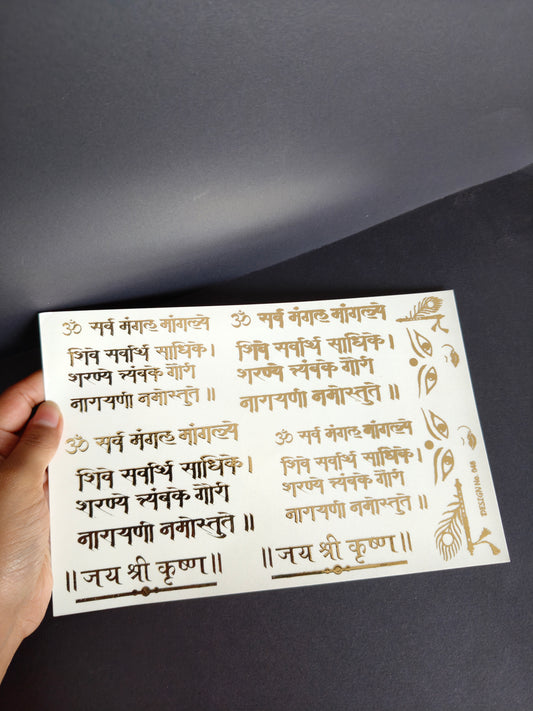 ॐ सर्व मंगल मांगल्ये
शिवे सर्वार्थ साधिके।
शरण्ये त्र्यंबके गौरी
नारायणी नमोस्तुते ॥
ॐ सर्व मंगल मांगल्ये
शिवे सर्वार्थ साधिके।
शरण्ये त्र्यंबके गौरी
नारायणी नमोस्तुते ॥
ॐ सर्व मंगल मांगल्ये
शिवे सर्वार्थ साधिके।
शरण्ये त्र्यंबके गौरी
नारायणी नमोस्तुते ॥
॥ जय श्री कृष्ण ॥
ॐ सर्व मंगल मांगल्ये
शिवे सर्वार्थ साधिके।
शरण्ये त्र्यंबके गौरी
नारायणी नमोस्तुते ॥
॥ जय श्री कृष्ण ॥
DESIGN No.